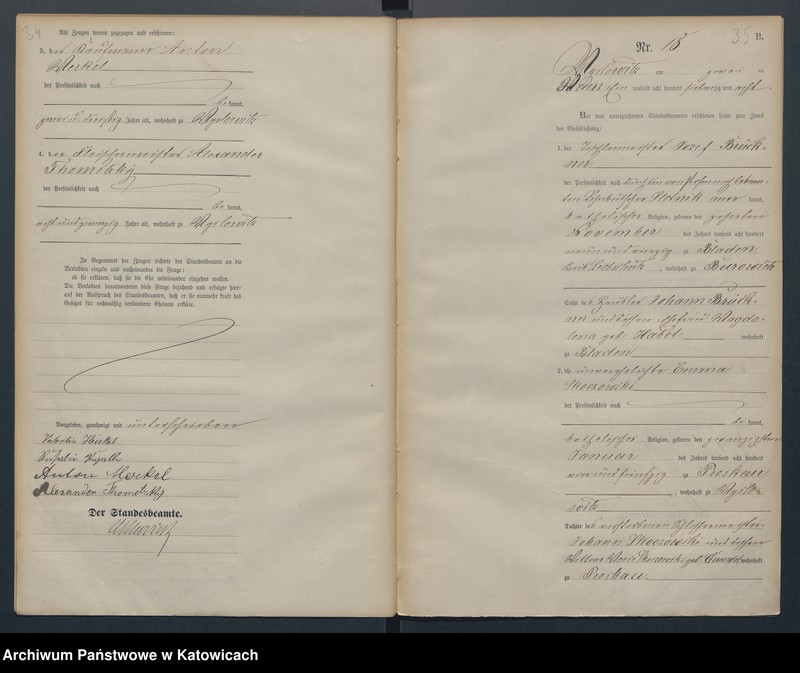 34
Als Zeugen waren zugezogen und erschienen:
3. der Kaufmann Anton
Merkel
der Persönlichkeit nach
be kannt,
zwei u. dreißig Jahre alt, wohnhaft zu Myslowitz
4. der Fleischermeister Alexander
Thometzky
der Persönlichkeit nach
be kannt,
acht und zwanzig Jahre alt, wohnhaft zu Myslowitz
In Gegenwart der Zeugen richtete der Standesbeamte an die
Verlobten einzeln und nacheinander die Frage:
ob sie erklären, daß sie die Ehe miteinander eingehen wollen.
Die Verlobten beantworteten diese Frage bejahend und erfolgte hier-
auf der Ausspruch des Standesbeamten, daß er sie nunmehr kraft des
Gesetzes für rechtmäßig verbundene Eheleute erkläre.
Vorgelesen, genehmigt und unterschrieben
Anton Merkel
Alexander Thometzky
Der Standesbeamte.
35
B.
Nr. 18
Myslowitz am zwei ten
tausend acht hundert siebenzig und acht
Vor dem unterzeichneten Standesbeamten erschienen heute zum Zweck
der Eheschließung:
1. der Tischlermeister Josef Brück-
ner
der Persönlichkeit nach durch den von Person bekann-
ten Slotnik aner kannt,
katholischer Religion, geboren den
November des Jahres tausend acht hundert
neun und vierzig zu Bladen
Kreis Leobschütz, wohnhaft zu Burowietz
Sohn des Häusler Johann Brück-
ner und dessen Ehefrau Magda-
lena geb. Habel wohnhaft
zu Bladen
2. die unverehelichte Emma
Skoczowski
der Persönlichkeit nach
be kannt,
katholischer Religion, geboren den zwanzigsten
Januar des Jahres tausend acht hundert
vier und fünfzig zu Proskau
, wohnhaft zu Myslo-
witz
Tochter des verstorbenen Schlossermeister
Johann Skoczowski und dessen
Wittwe Marie Skoczowski geb. wohnhaft
zu Proskau.
Archiwum Państwowe w Katowicach